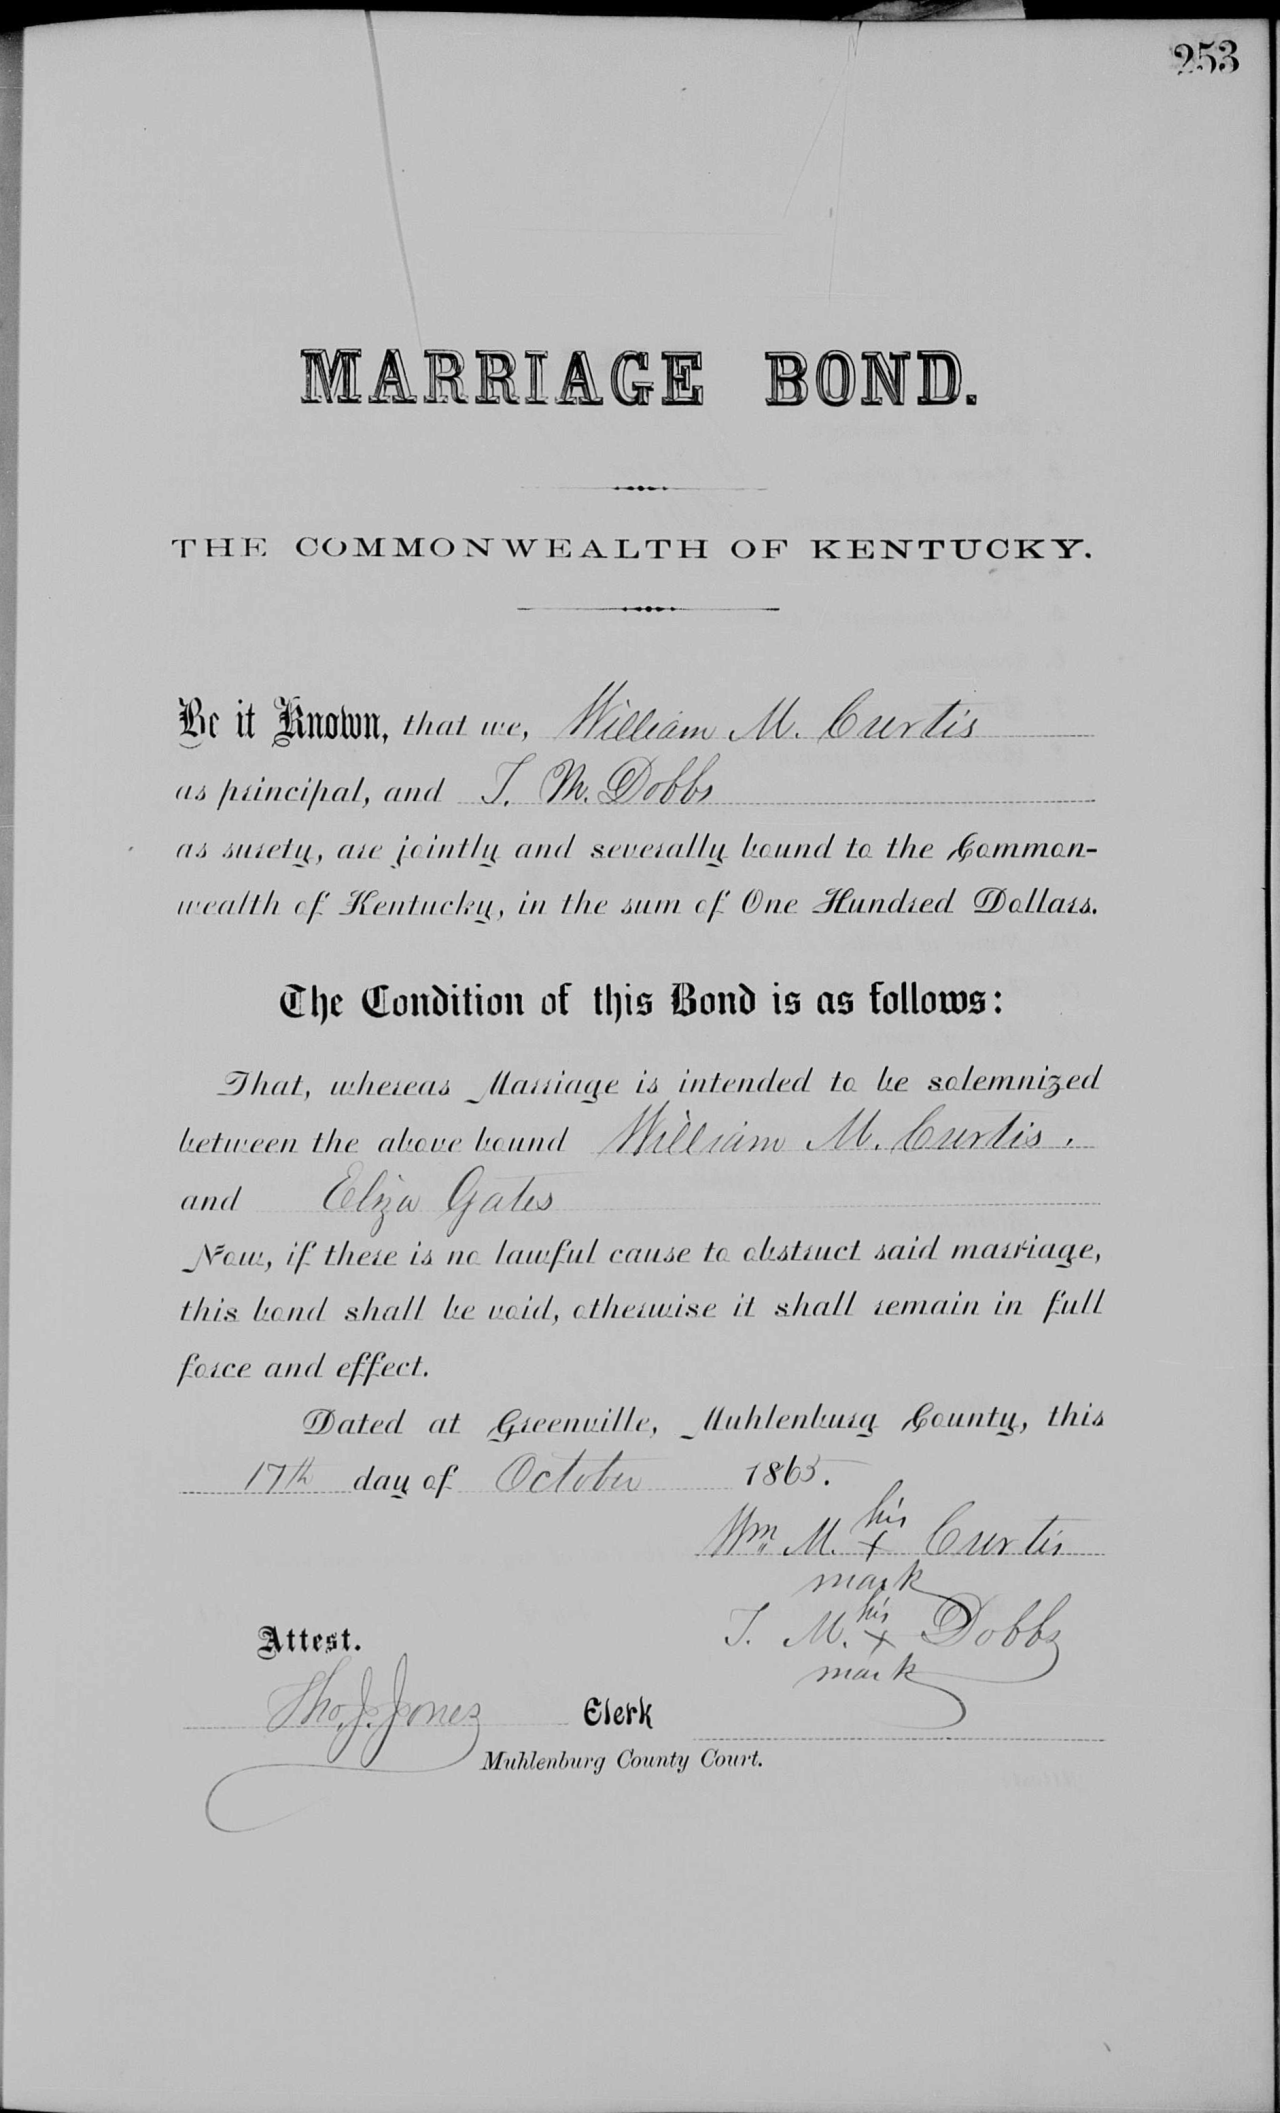 253
MARRIAGE BOND.
THE COMMONWEALTH OF KENTUCKY.
Be it Known, that we, William M. Curtis
as principal, and T. M. Dobbs
as surety, are jointly and severally bound to the Common-
wealth of Kentucky, in the sum of One Hundred Dollars.
The Condition of this Bond is as follows:
That, whereas Marriage is intended to be solemnized
between the above bound William M. Curtis.
and Eliza Gates
Now, if there is no lawful cause to obstruct said marriage,
this bond shall be void, otherwise it shall remain in full
force and effect.
Dated at Greenville, Muhlenburg County, this
17th day of October 1865.
his
Wm. M. x Curtis
mark
his
T. M. x Dobbs
mark
Attest.
Tho. J. Jones Clerk
Muhlenburg County Court.